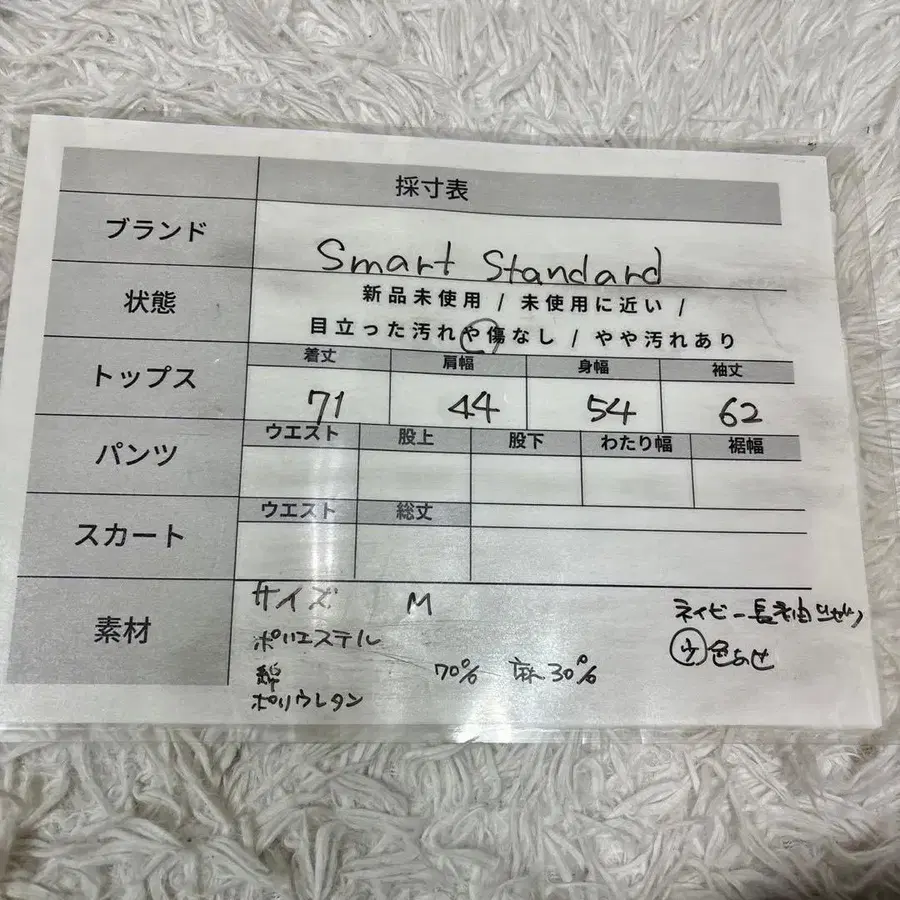 採寸表
ブランド
Smart Standard
状態
新品未使用 / 未使用に近い /
目立った汚れや傷なし / やや汚れあり
トップス
着丈 肩幅 身幅 袖丈
71 44 54 62
パンツ
ウエスト 股上 股下 わたり幅 裾幅
スカート
ウエスト 総丈
素材
サイズ M
ポリエステル
綿 70% 麻30%
ポリウレタン
ネイビー長袖
色あせ